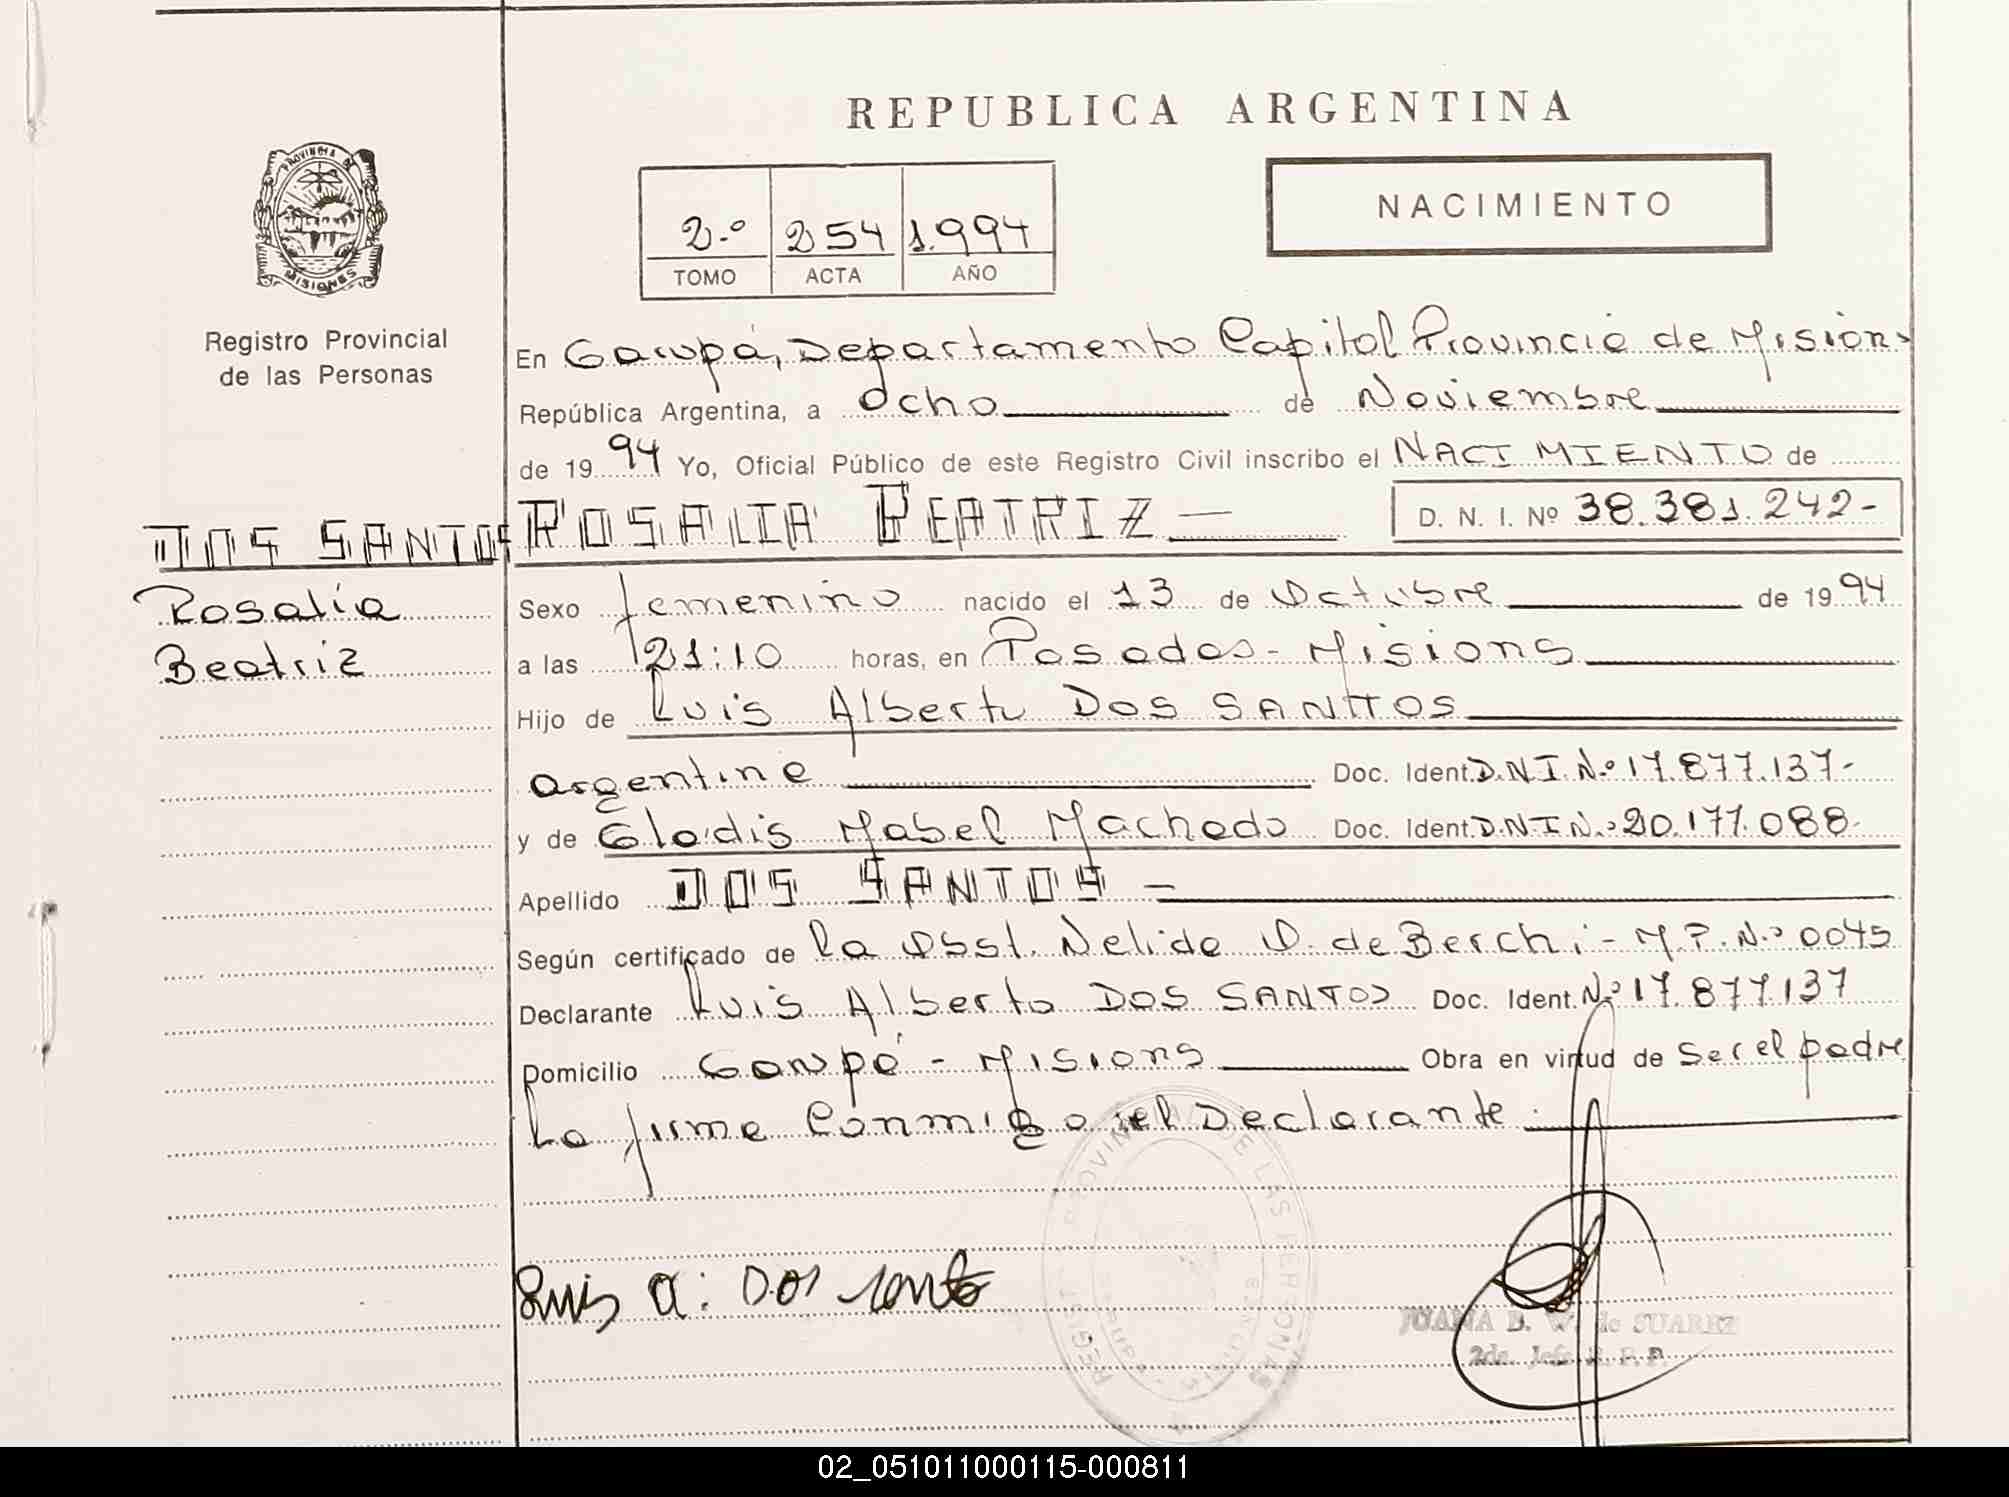 REPUBLICA ARGENTINA
PROVINCIA DE
MISIONES
Registro Provincial
de las Personas
2.º 254 1.994
TOMO ACTA AÑO
NACIMIENTO
En Garupá, Departamento Capital Provincia de Mision
República Argentina, a Ocho de Noviembre
de 19 94 Yo, Oficial Público de este Registro Civil inscribo el NACIMIENTO de
DOS SANTOS ROSALIA BEATRIZ — D. N. I. Nº 38.381.242-
Rosalia
Beatriz
Sexo femenino nacido el 13 de Octubre de 19 94
a las 21:10 horas, en Posadas - Misions
Hijo de Luis Alberto DOS SANTOS
argentina Doc. Ident. D.N.I. N.º 17.877.137-
y de Gladis Mabel Machado Doc. Ident. D.N.I N.º 20.177.088-
Apellido DOS SANTOS —
Según certificado de la Obst. Nelida O. de Berchi - M.P.N.º 0045
Declarante Luis Alberto DOS SANTOS Doc. Ident. Nº 17.877.137
Domicilio Garupá - Misions Obra en virtud de Ser el padre
La firma Conmigo el Declarante.
REGISTRO PROVINCIAL DE LAS PERSONAS
Luis A. Dos Santo
JUANA B. W. de SUAREZ
2da. Jefe R. P. P.
02_051011000115-000811